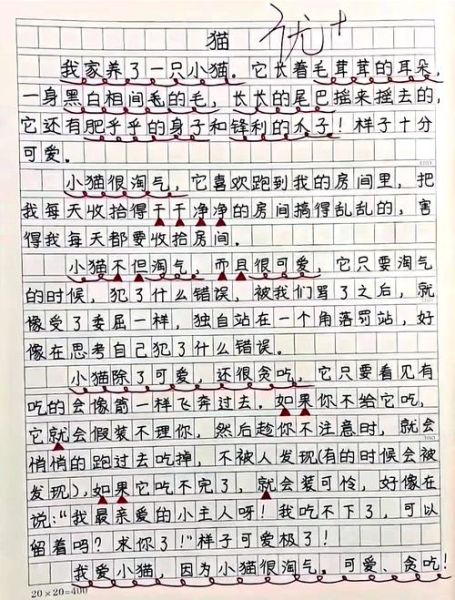 猫
优+
我家养了一只小猫。它长着毛茸茸的耳朵,
一身黑白相间毛的毛,长长的尾巴摇来摇去的,
它还有肥乎乎的身子和锋利的人子!样子十分
可爱。
小猫很淘气,它喜欢跑到我的房间里,把
我每天收拾得干干净净的房间搞得乱乱的,害
得我每天都要收拾房间。
小猫不但淘气,而且很可爱,它只要淘气
的时候,犯了什么错误,被我们骂了之后,就
像受了委屈一样,独自站在一个角落罚站,好
像在思考自己犯了什么错误。
小猫除了可爱,还很贪吃,它只要看见有
吃的会像箭一样飞奔过去。如果你不给它吃,
它就会假装不理你,然后趁你不注意时,就会
悄悄的跑过去吃掉,不被人发现(有的时候会被
发现),如果它吃不完了,就会装可怜,好像在
说:“我最亲爱的小主人呀!我吃不下了,可以
留着吗?求你了!”样子可爱极了!
我爱小猫,因为小猫很淘气。可爱、贪吃!
20×20=400